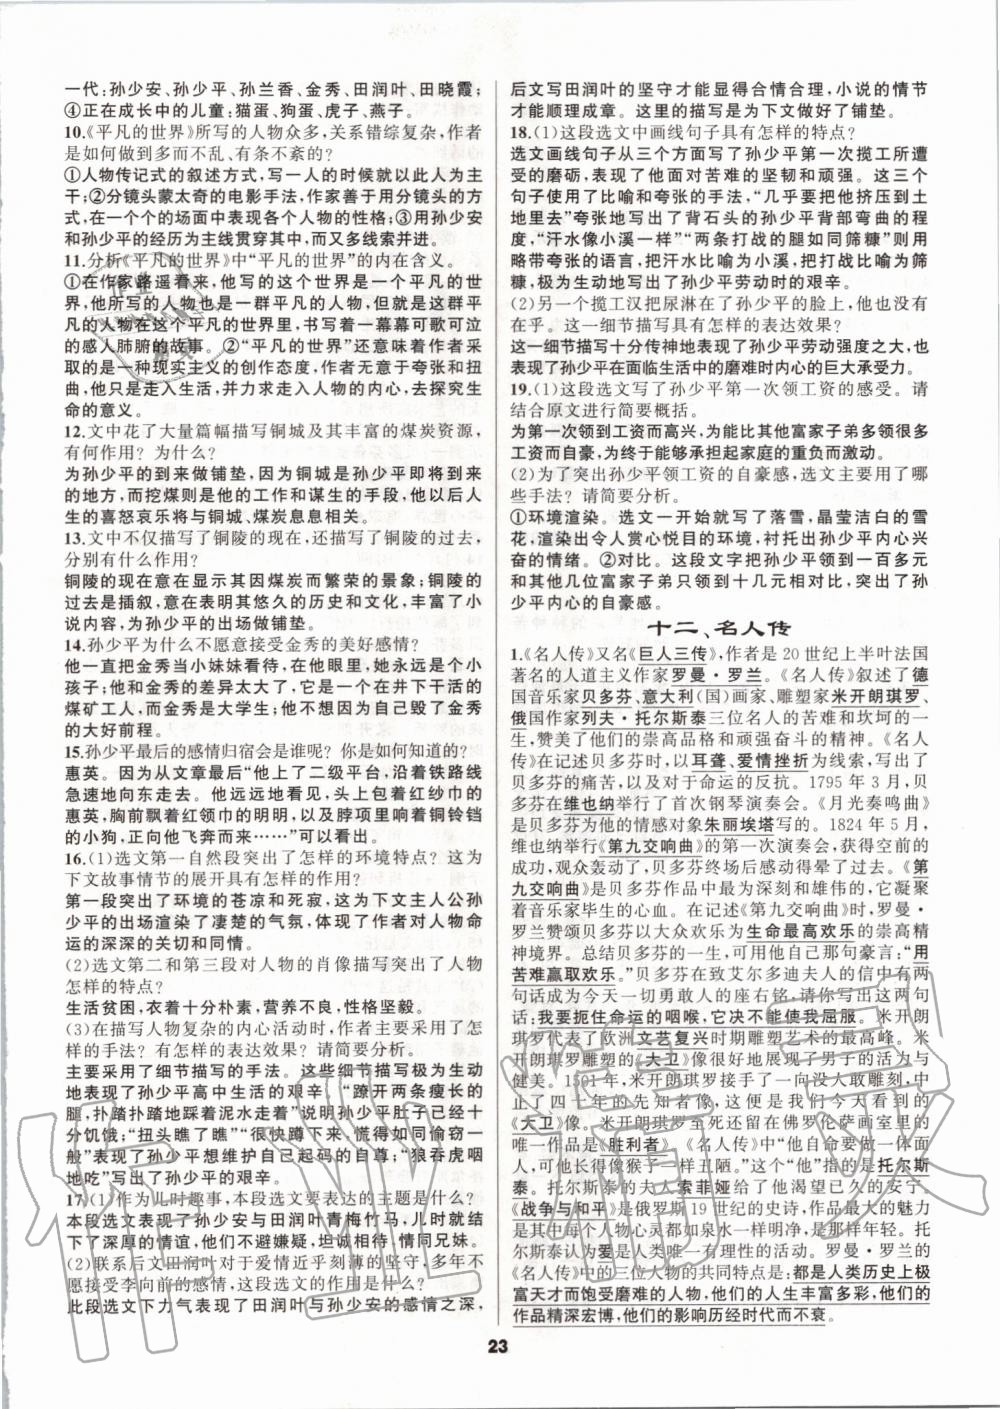 一代:孙少安、孙少平、孙兰香、金秀、田润叶、田晓霞;
④正在成长中的儿童:猫蛋、狗蛋、虎子、燕子。
10.《平凡的世界》所写的人物众多,关系错综复杂,作者
是如何做到多而不乱、有条不紊的?
①人物传记式的叙述方式,写一人的时候就以此人为主
干;②分镜头蒙太奇的电影手法,作家善于用分镜头的方
式,在一个个的场面中表现各个人物的性格;③用孙少安
和孙少平的经历为主线贯穿其中,而又多线索并进。
11.分析《平凡的世界》中“平凡的世界”的内在含义。
①在作家路遥看来,他写的这个世界是一个平凡的世
界,他所写的人物也是一群平凡的人物,但就是这群平
凡的人物在这个平凡的世界里,书写着一幕幕可歌可泣
的感人肺腑的故事。②“平凡的世界”还意味着作者采
取的是一种现实主义的创作态度,作者无意于夸张和扭
曲,他只是走入生活,并力求走入人物的内心,去探究生
命的意义。
12.文中花了大量篇幅描写铜城及其丰富的煤炭资源,
有何作用?为什么?
为孙少平的到来做铺垫,因为铜城是孙少平即将到来
的地方,而挖煤则是他的工作和谋生的手段,他以后人
生的喜怒哀乐将与铜城、煤炭息息相关。
13.文中不仅描写了铜陵的现在,还描写了铜陵的过去,
分别有什么作用?
铜陵的现在意在显示其因煤炭而繁荣的景象;铜陵的
过去是插叙,意在表明其悠久的历史和文化,丰富了小
说内容,为孙少平的出场做铺垫。
14.孙少平为什么不愿意接受金秀的美好感情?
他一直把金秀当小妹妹看待,在他眼里,她永远是个小
孩;他和金秀的差异太大了,它是一个在井下干活的
煤矿工人,而金秀是大学生;他不想因为自己毁了金秀
的大好前程。
15.孙少平最后的感情归宿会是谁呢?你是如何知道的?
惠英。因为从文章最后“他上了二级平台,沿着铁路线
急速地向东走去。他远远地看见,头上包着红纱巾的
惠英,胸前飘着红领巾的明明,以及脖项里响着铜铃铛
的小狗,正向他飞奔而来……”可以看出。
16.(1)选文第一自然段突出了怎样的环境特点?这为
下文故事情节的展开具有怎样的作用?
第一段突出了环境的苍凉和死寂,这为下文主人公孙
少平的出场渲染了凄楚的气氛,体现了作者对人物命
运的深深的关切和同情。
(2)选文第二和第三段对人物的肖像描写突出了人物
怎样的特点?
生活贫困,衣着十分朴素,营养不良,性格坚毅。
(3)在描写人物复杂的内心活动时,作者主要采用了怎
样的手法?有怎样的表达效果?请简要分析。
主要采用了细节描写的手法。这些细节描写极为生动
地表现了孙少平高中生活的艰辛。“撩开两条瘦长的
腿,扑踏扑踏地踩着泥水走着”说明孙少平肚子已经十
分饥饿;“扭头瞧了瞧”“很快蹲下来,慌得如同偷窃一
般”表现了孙少平想维护自己起码的自尊;“狼吞虎咽
地吃”写出了孙少平的艰辛。
17.(1)作为儿时趣事,本段选文要表达的主题是什么?
本段选文表现了孙少安与田润叶青梅竹马,从小就结
下了深厚的情谊,他们不避嫌疑,坦诚相待,情同兄妹。
(2)联系后文田润叶对于爱情近乎刻薄的坚守,多年不
愿接受李向前的感情,这段选文的作用是什么?
此段选文下力气表现了田润叶与孙少安的感情之深,
后文写田润叶的坚守才能显得合情合理,小说的情节
才能顺理成章。这里的描写是为下文做好了铺垫。
18.(1)这段选文中画线句子具有怎样的特点?
选文画线句子从三个方面写了孙少平第一次揽工所遭
受的磨砺,表现了他面对苦难的坚韧和顽强。这三个
句子使用了比喻和夸张的手法,“几乎要把他挤压到土
地里去”夸张地写出了背石头的孙少平背部弯曲的程
度,“汗水像小溪一样”“两条打战的腿如同筛糠”则用
略带夸张的语言,把汗水比喻为小溪,把打战比喻为筛
糠,极为生动地写出了孙少平劳动时的艰辛。
(2)另一个揽工汉把尿淋在了孙少平的脸上,他也没有
在乎。这一细节描写具有怎样的表达效果?
这一细节描写十分传神地表现了孙少平劳动强度之大,也
表现了孙少平在面临生活中的磨难时内心的巨大承受力。
19.(1)这段选文写了孙少平第一次领工资的感受。请
结合原文进行简要概括。
为第一次领到工资而高兴,为能比其他富家子弟多领一些
工资而自豪,为终于能够承担起家庭的重负而激动。
(2)为了突出孙少平领工资的自豪感,选文主要用了哪
些手法?请简要分析。
①环境渲染。选文一开始就写了落雪,晶莹洁白的雪
花,渲染出令人赏心悦目的环境,衬托出孙少平内心兴
奋的情绪。②对比。这段文字把孙少平领到一百多元
和其他几位富家子弟只领到十几元相对比,突出了孙
少平内心的自豪感。
十二、名人传
1.《名人传》又名《巨人三传》,作者是 20 世纪上半叶法国
著名的人道主义作家罗曼·罗兰。《名人传》叙述了德
国音乐家贝多芬、意大利(国)画家、雕塑家米开朗琪罗、
俄国作家列夫·托尔斯泰三位名人的苦难和坎坷的一
生,赞美了他们的崇高品格和顽强奋斗的精神。《名人
传》在记述贝多芬时,以耳聋、爱情挫折为线索,写出了
贝多芬的痛苦,以及对于命运的反抗。1795 年 3 月,贝
多芬在维也纳举行了首次钢琴演奏会。《月光奏鸣曲》
是贝多芬为他的情感对象朱丽埃塔写的。1824 年 5 月,
维也纳举行《第九交响曲》的第一次演奏会,获得空前的
成功,观众轰动了,贝多芬终场后感动得晕了过去。《第
九交响曲》是贝多芬作品中最为深刻和雄伟的,它凝聚
着音乐家毕生的心血。在记述《第九交响曲》时,罗曼·
罗兰赞美贝多芬以大众欢乐为生命最高欢乐的崇高精
神境界。总结贝多芬的一生,可用他自己那句豪言:“用
苦难赢取欢乐。”贝多芬在致艾尔多迪夫人的信中有两
句话成为今天一切勇敢人的座右铭,请你写出这两句
话:我要扼住命运的咽喉,它决不能使我屈服。米开朗
琪罗代表了欧洲文艺复兴时期雕塑艺术的最高峰。米开
朗琪罗雕塑的《大卫》像很好地展现了男子的活力与
健美。1501 年,米开朗琪罗接手了一块无人敢雕刻,中
止了四十年的先知者像,这块巨大的石头后来成为了
《大卫》像。米开朗琪罗至死还留在佛罗伦萨画室里的
唯一作品是《胜利者》。《名人传》中“他自命要做一体面
人,可是他长得像猴子一样丑陋。”这个“他”指的是托尔斯
泰。托尔斯泰的夫人索菲娅给了他渴望已久的安宁。
《战争与和平》是俄罗斯 19 世纪的史诗,作品最大的魅力
是其年轻,每个人物心灵都如泉水一样明净,是那样年轻。托
尔斯泰认为爱是人类唯一有理性的活动。罗曼·罗兰的
《名人传》中的三位人物的共同特点是:都是人类历史上极
富天才而饱受磨难的人物,他们的人生丰富多彩,他们的
作品精深宏博,他们的影响历经时代而不衰。
23